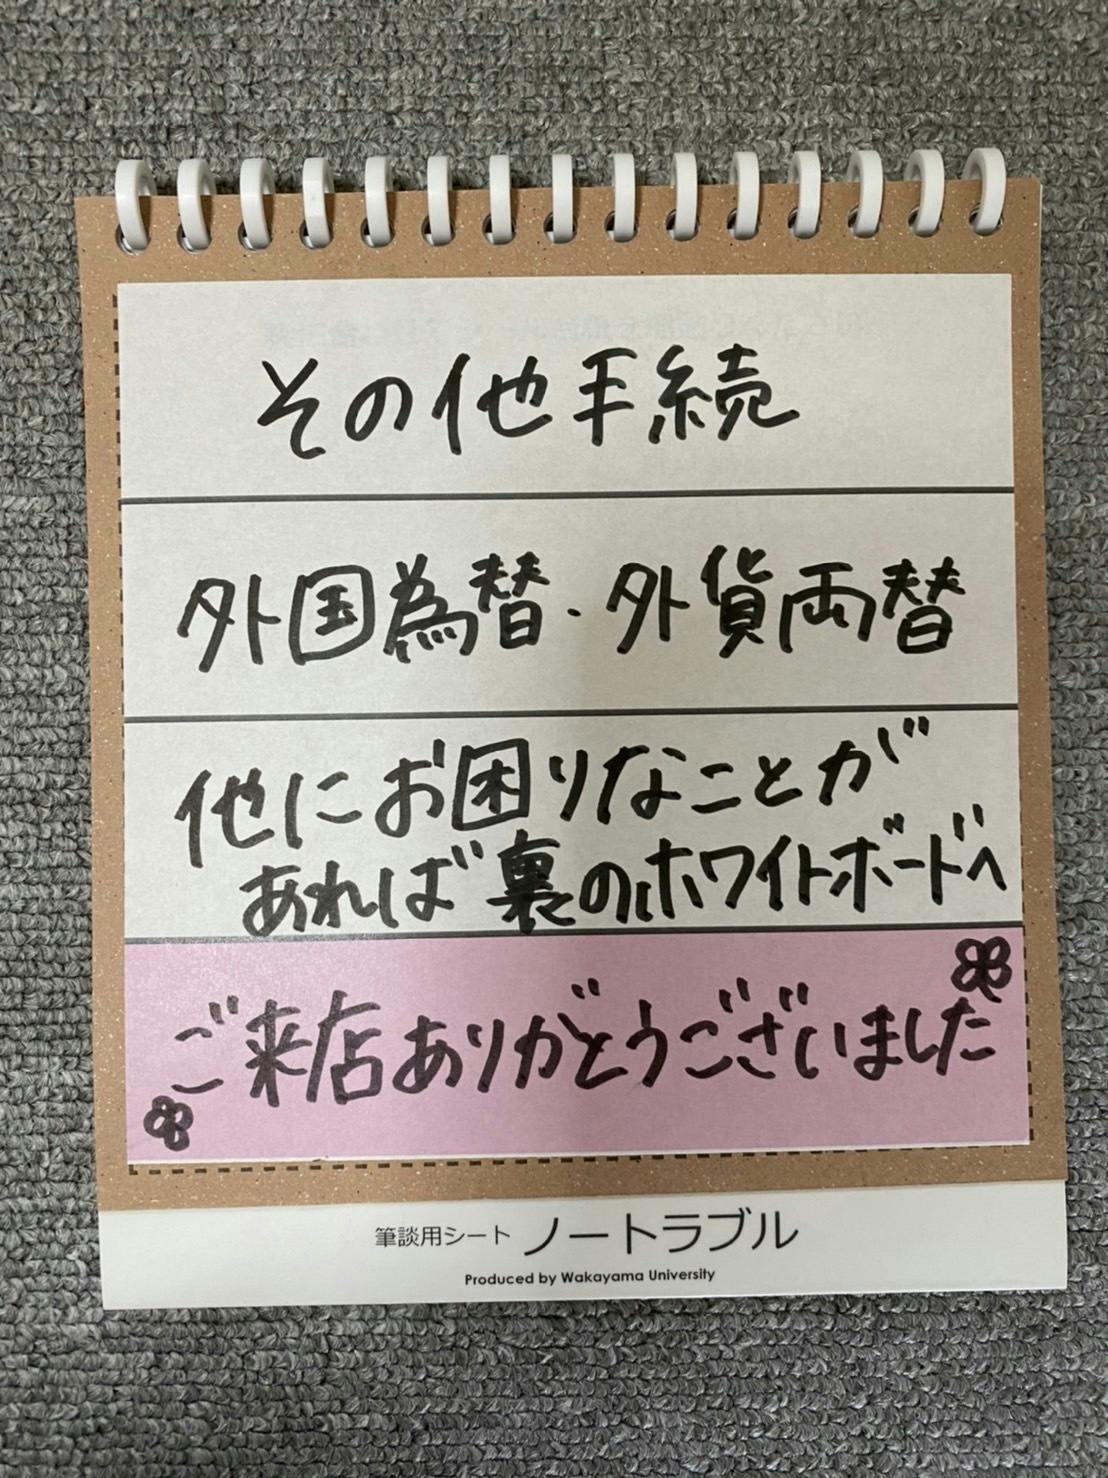 その他手続
外国為替・外貨両替
他にお困りなことが
あれば裏のホワイトボードへ
ご来店ありがとうございました
筆談用シート ノートラブル
Produced by Wakayama University